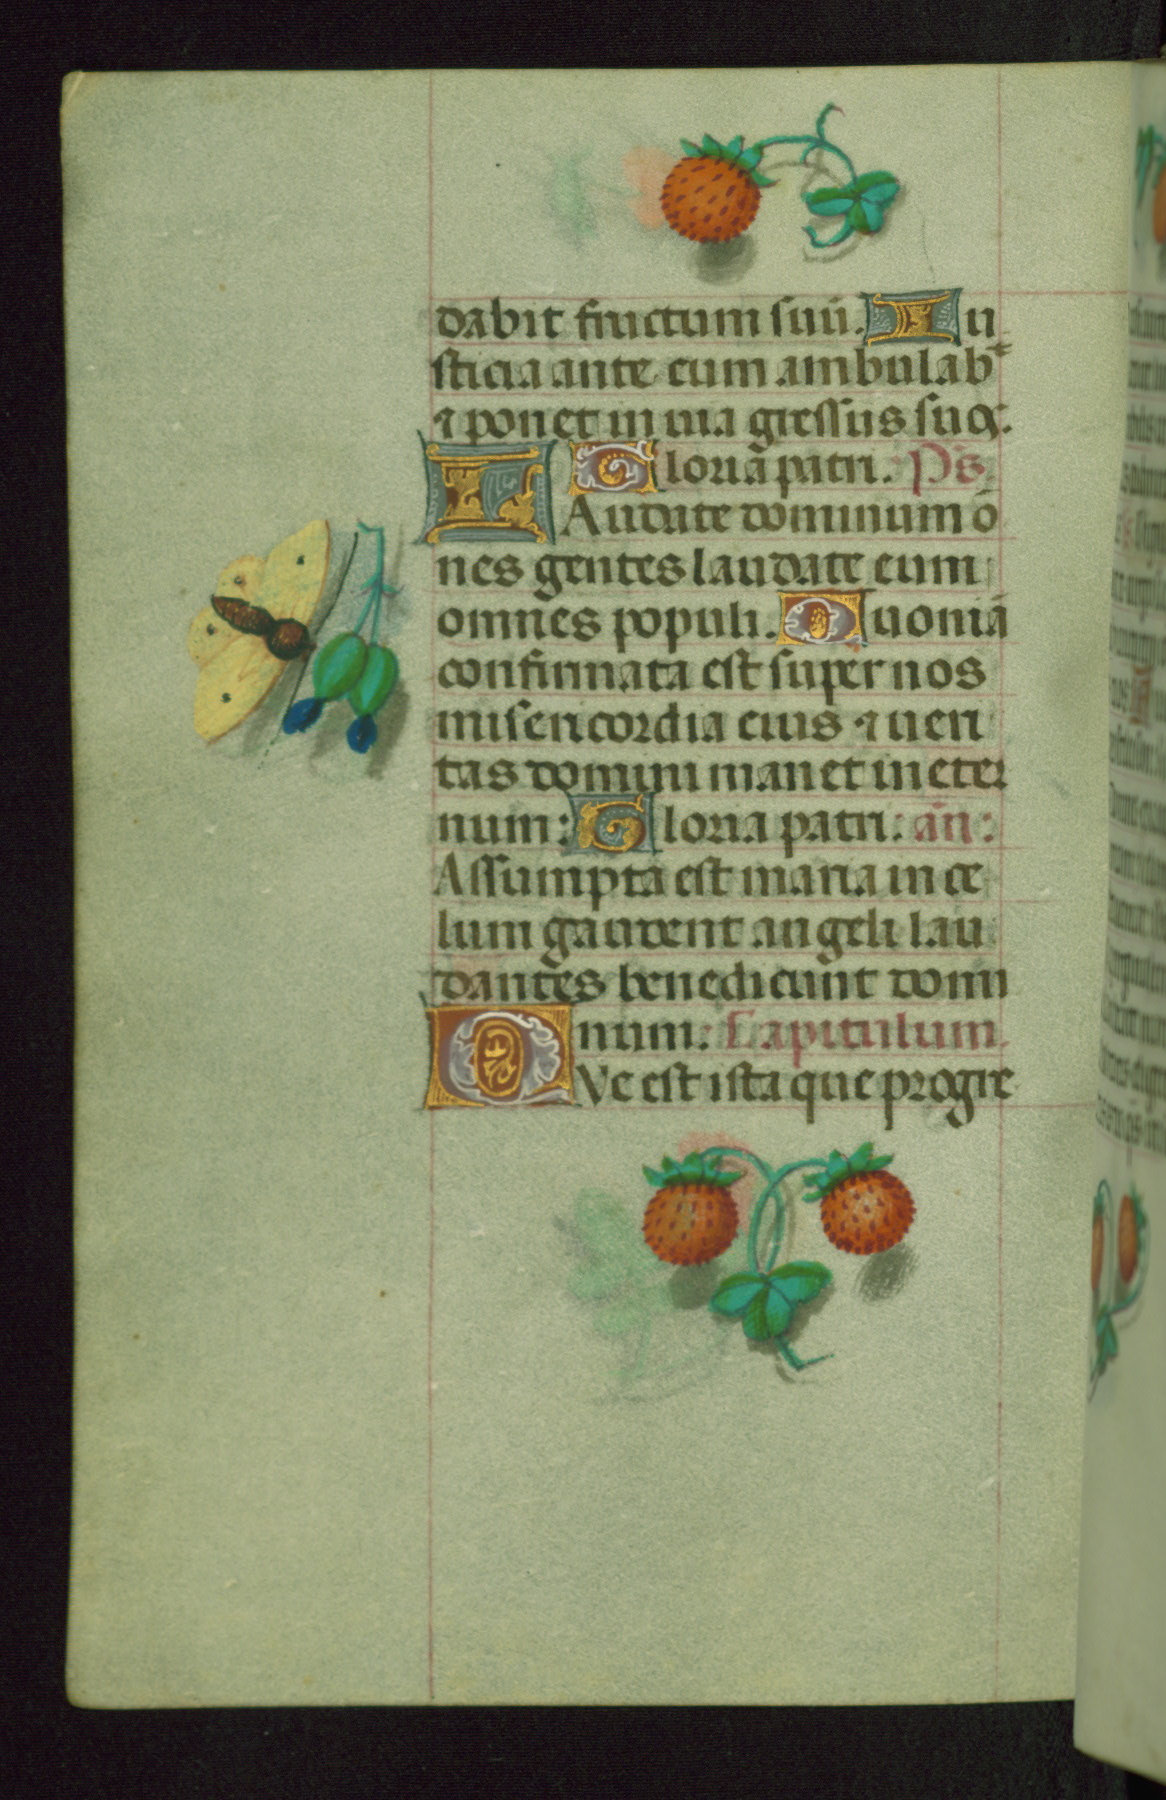 dabit fructum suū. Iu
sticia ante eum ambulab᷑
⁊ ponet in uia gressus suos.
Gloriā patri. Ps̄
LAudate dominum ō
nes gentes laudate eum
omnes populi. Quoniā
confirmata est super nos
misericordia eius ⁊ ueri
tas domini manet in eter
num: Gloria patri: añ:
Assumpta est maria in ce
lum gaudent angeli lau
dantes benedicunt domi
num: Capitulum.
QVe est ista que progre